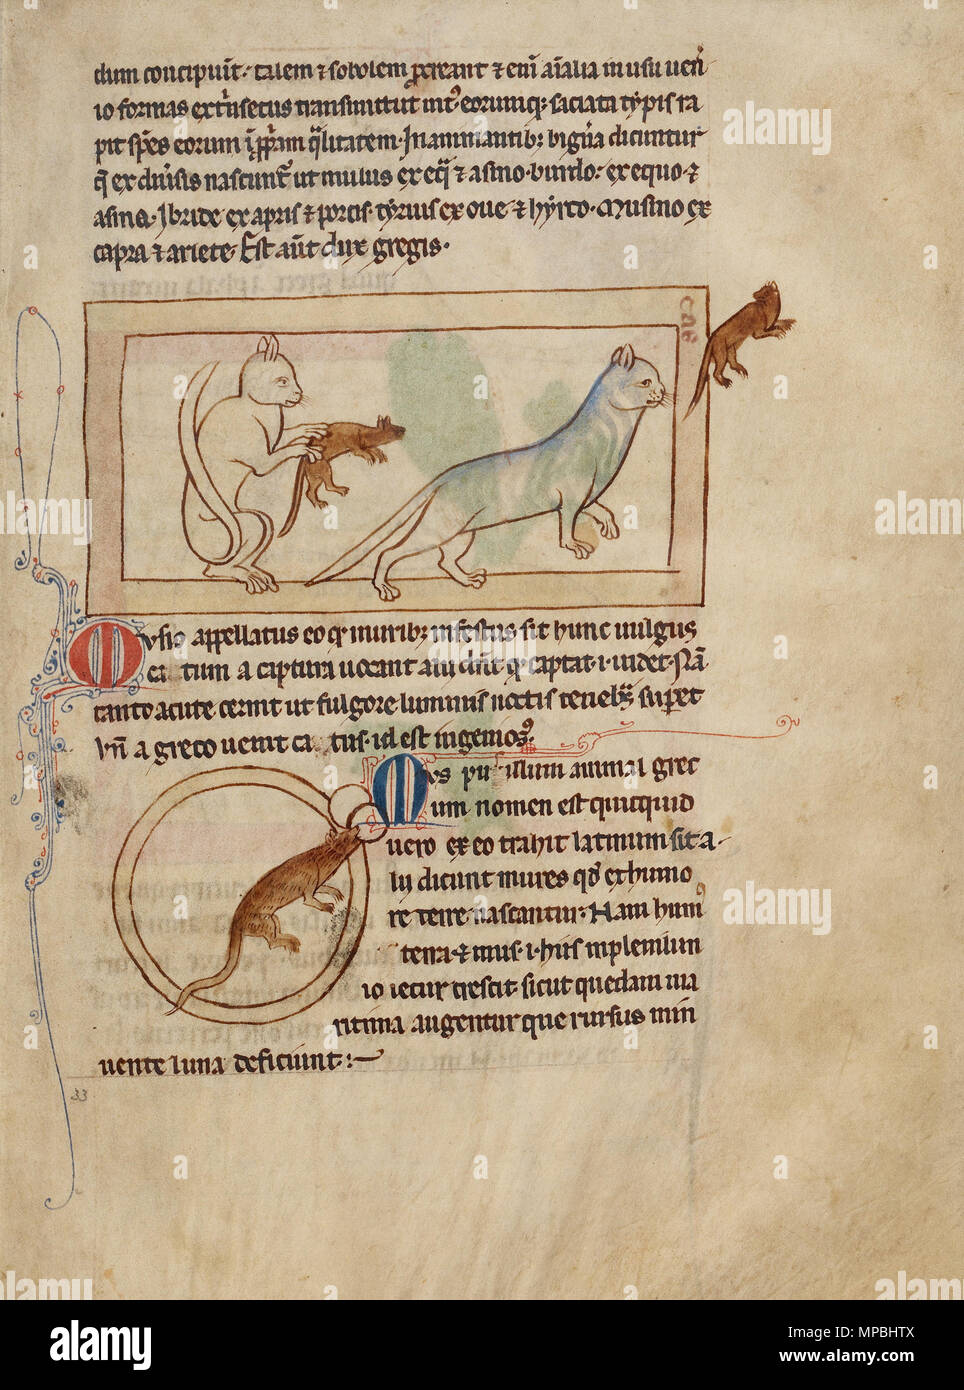 dum concipiunt. talem ⁊ sobolem procreant ⁊ eni aialia in usu ueñ
io formas extrinsecus transmittut int' eorumq; saciata typis ra
pit spēs eorum ī ppriam qlitatem. In animantib; bigña dicuntur
q̄ ex diuisis nascunt ut mulus ex eq̄ ⁊ asino. burdo: ex equo ⁊
asina. Ibride ex apris ⁊ porcis. tyrius ex oue ⁊ hyrco. Musmo ex
capra ⁊ ariete. Est aūt dux gregis.
cat
Musio appellatus eo q̛ murib; infestus sit hunc uulgus
ca tum a captura uocant alii dnt q̛ captat .i. uidet. Nā
tanto acute cernit ut fulgore luminis noctis tenebs superet
Vñ a greco uenit ca tus. id est ingenios'.
Mus pusillum animal grec
um nomen est quicquid
uero ex eo trahit latinum sit a
lii dicunt mures qd ex humo
re terre nascantur. Nam hum'
terra ⁊ mus .i. hiis in plenilun
io iecur crescit. sicut quedam ma
ritima augentur que rursus min
uente luna deficiunt:
33
alamy
Image ID: MPBHTX
www.alamy.com